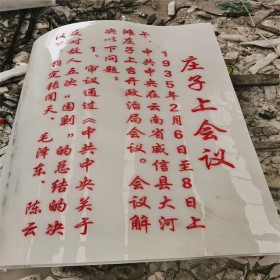 庄子上会议
1935年2月6日至8日上
午，中共中央在云南省威信县大河
滩子上召开政治局会议。会议解
决以下问题。
1、审议通过《中共中央关于
反对敌人五次“围剿”的总结的决
议》 指定张闻天、毛泽东、陈云